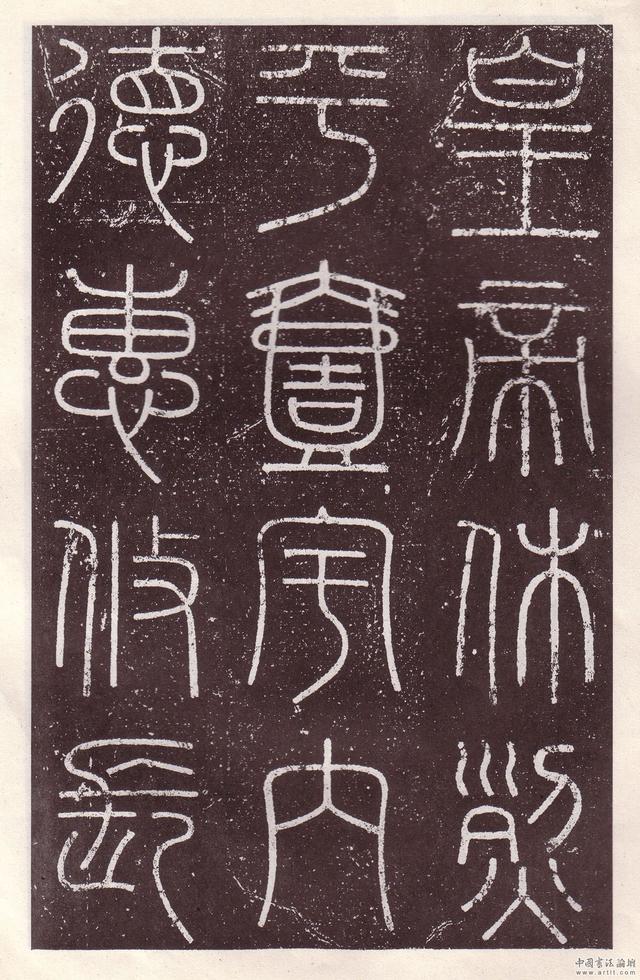 皇帝休烈
平壹宇内
德惠攸長
中國書法論壇
www.artit.com